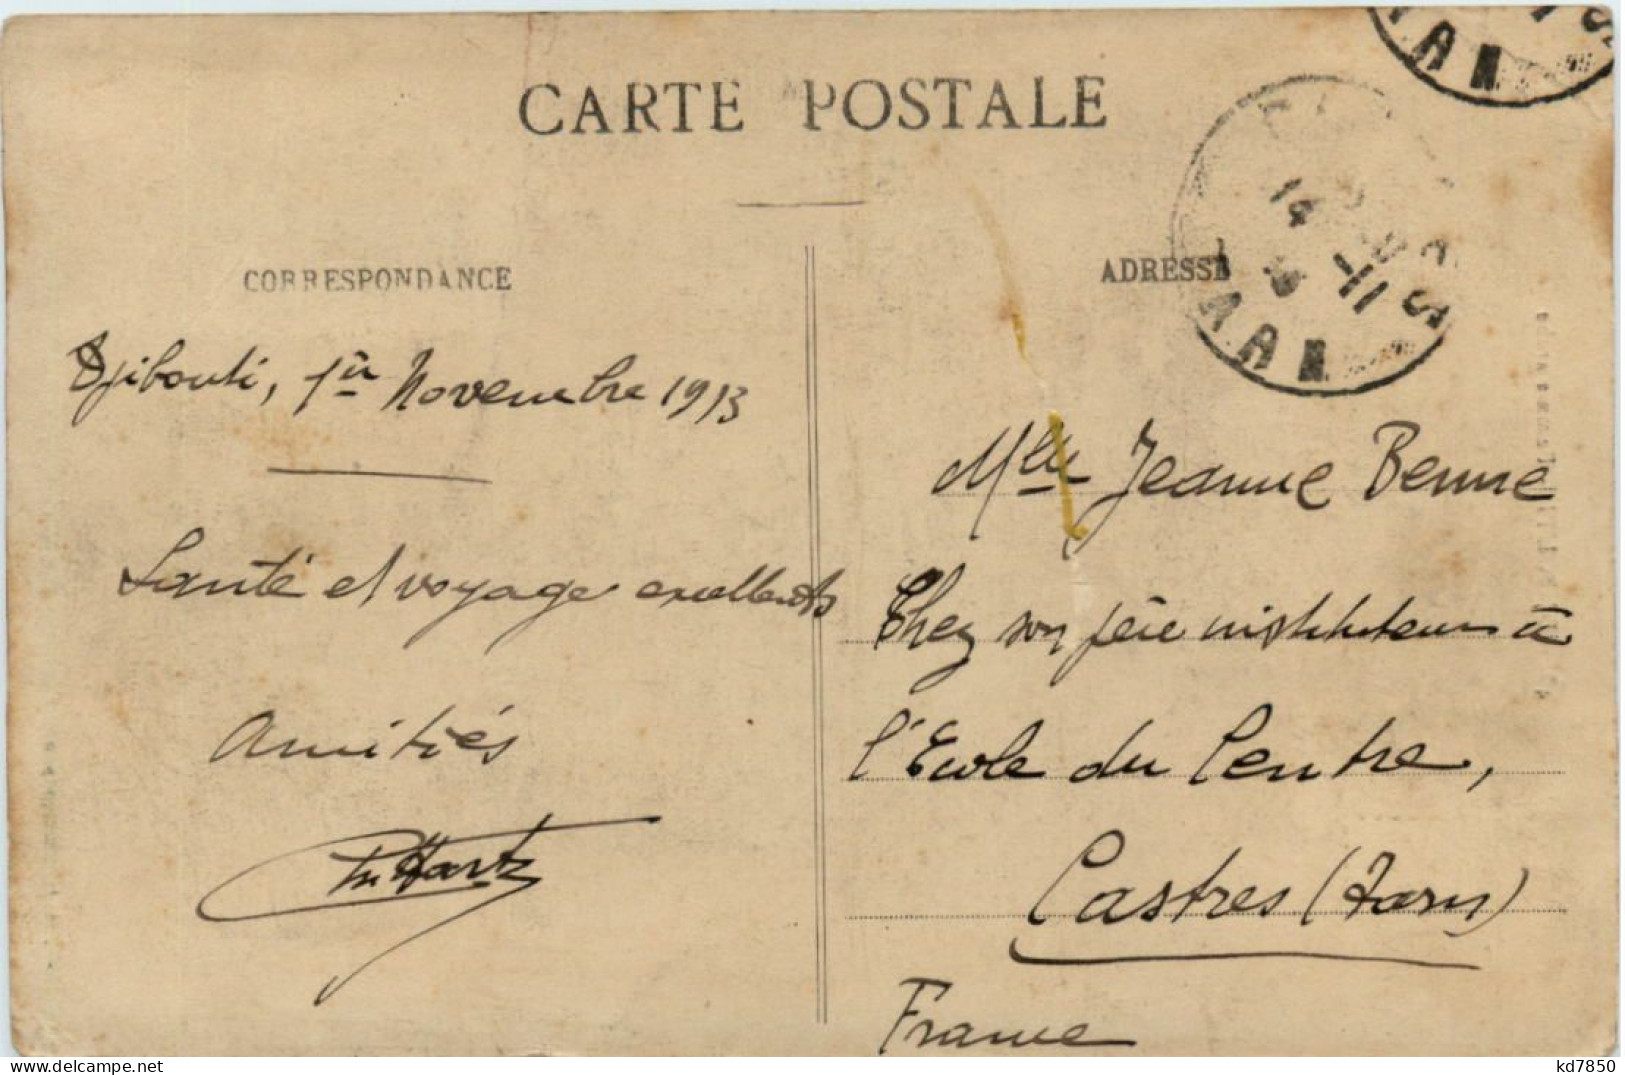 CARTE POSTALE
CORRESPONDANCE
ADRESSE
Djibouti, 1er Novembre 1913
Santé et voyage excellents
Amitiés
Mlle Jeanne Benne
Chez son père instituteur à
l'Ecole du Centre,
Castres (Tarn)
France
kd7850